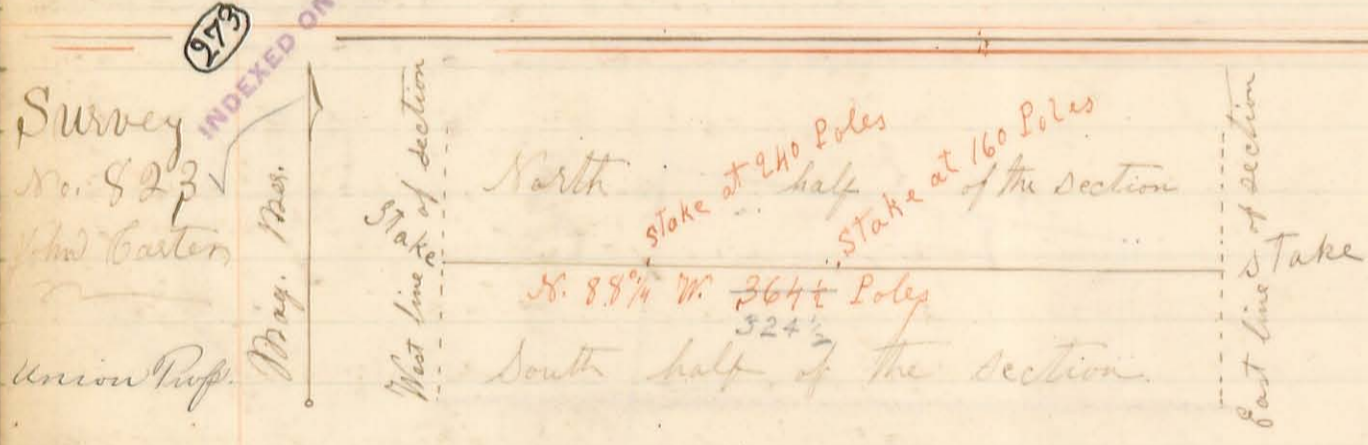 273
INDEXED ON
Survey
No. 823
John Carter
Union Twp.
Mag. Mer.
West line of section
Stake
North half of the section
stake at 240 Poles
Stake at 160 Poles
N. 88°¼ W. 364½ Poles
324½
South half of the section
East line of section
stake